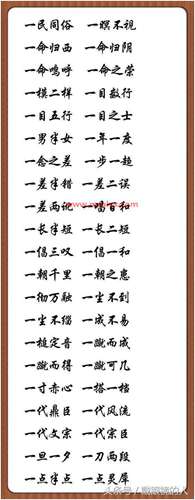 一民同俗 一瞑不视
一命归西 一命归阴
一命呜呼 一命之荣
一模二样 一目数行
一目五行 一目之士
一男半女 一年一度
一念之差 一步一趋
一差半错 一差二误
一差两讹 一唱百和
一长半短 一长二短
一倡三叹 一倡一和
一朝千里 一朝之患
一彻万融 一尘不到
一尘不缁 一成不易
一槌定音 一蹴而成
一蹴而得 一蹴可几
一寸赤心 一搭一档
一代鼎臣 一代风流
一代文宗 一代宗臣
一旦一夕 一刀两段
一点半点 一点灵犀